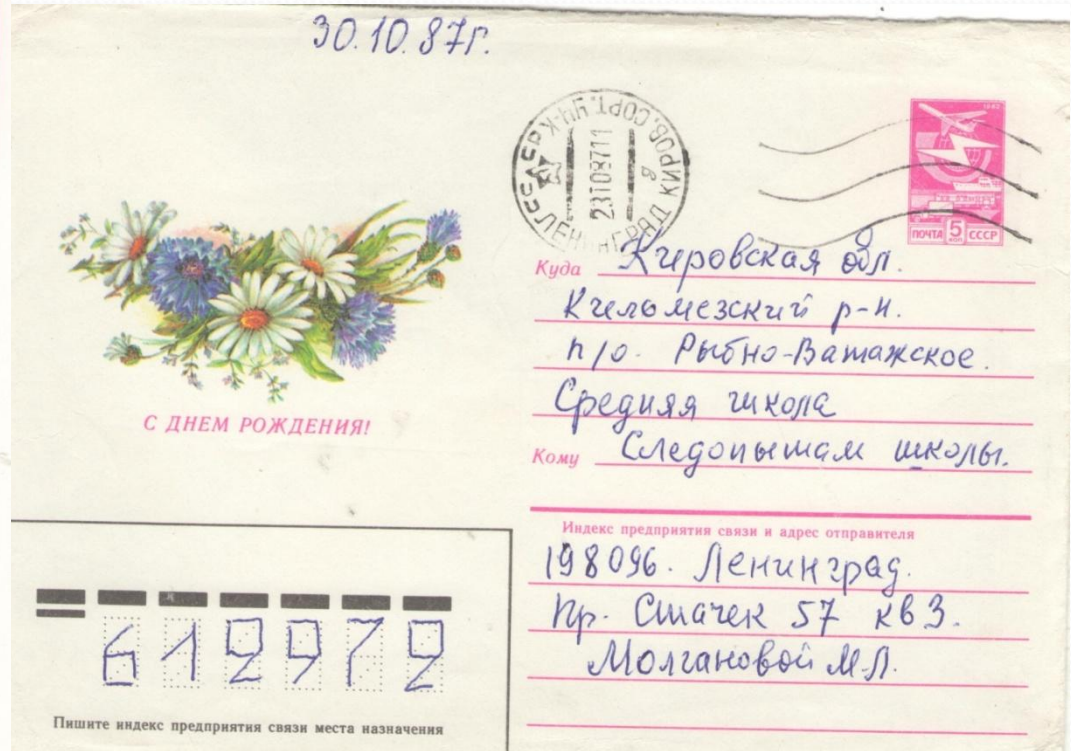 30.10.87г.
СССР
ЛЕНИНГРАД КИРОВ. СОРТ. УЧ-К
23108711
в
1982
ПОЧТА 5 коп СССР
С ДНЕМ РОЖДЕНИЯ!
Куда Кировская обл.
Кильмезский р-н.
п/о. Рыбно-Ватажское.
Средняя школа
Кому Следопытам школы.
Индекс предприятия связи и адрес отправителя
198096. Ленинград.
пр. Стачек 57 кв 3.
Молгановой М.Л.
612972
Пишите индекс предприятия связи места назначения